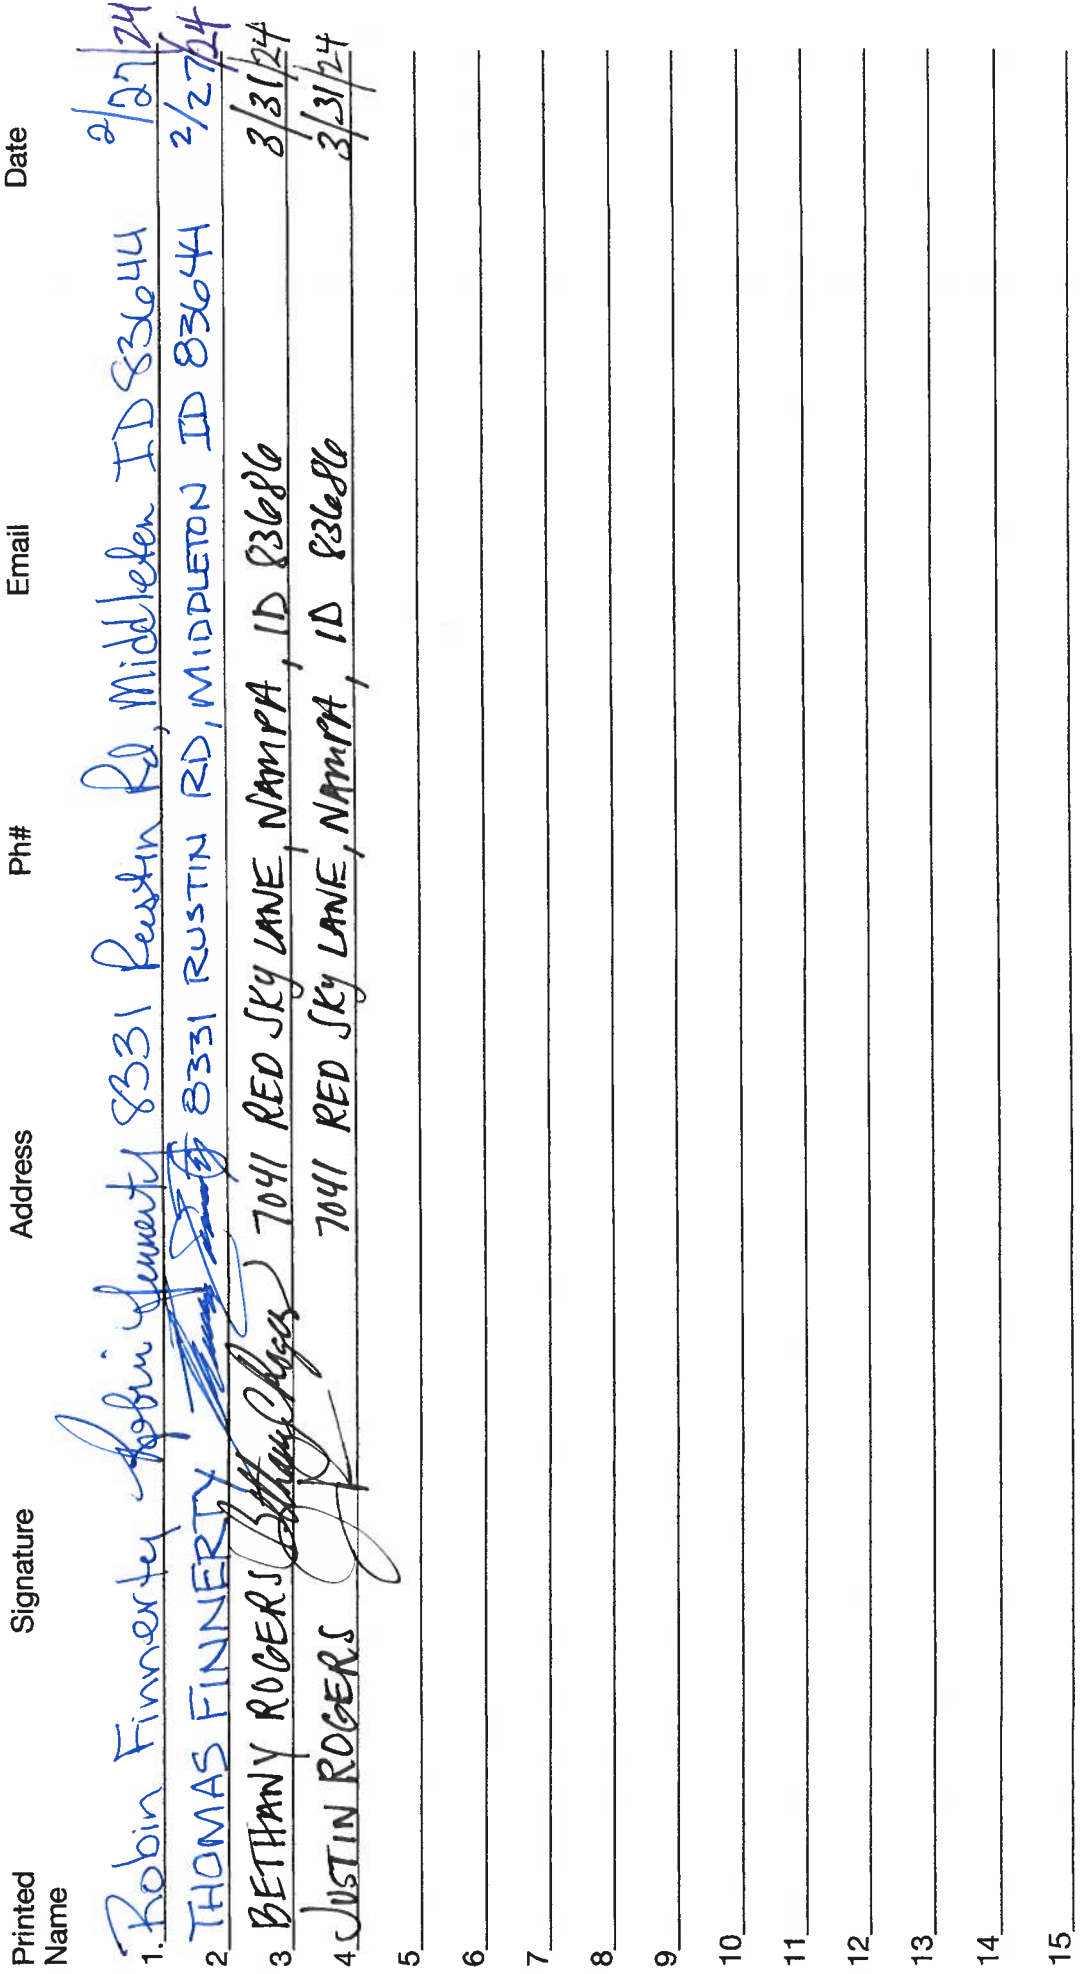 Printed Name Signature Address Ph# Email Date
1. Robin Finnerty Robin Finnerty 8331 Rustin Rd, Middleton ID 83644 2/27/24
2 THOMAS FINNERTY 8331 RUSTIN RD, MIDDLETON ID 83644 2/27/24
3 BETHANY ROGERS Bethany Rogers 7041 RED SKY LANE, NAMPA, ID 83686 3/31/24
4 JUSTIN ROGERS 7041 RED SKY LANE, NAMPA, ID 83686 3/31/24
5
6
7
8
9
10
11
12
13
14
15